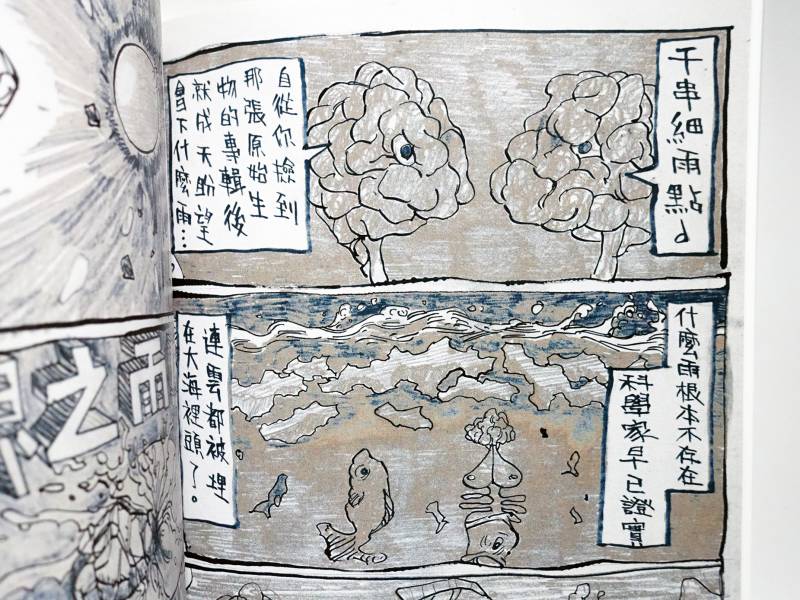 千串細雨點♪
自從你撿到
那張原始生
物的專輯後
就成天盼望
會下什麼雨…
什麼雨根本不存在
科學家早已證實
連雲都被埋
在大海裡頭了。
之雨